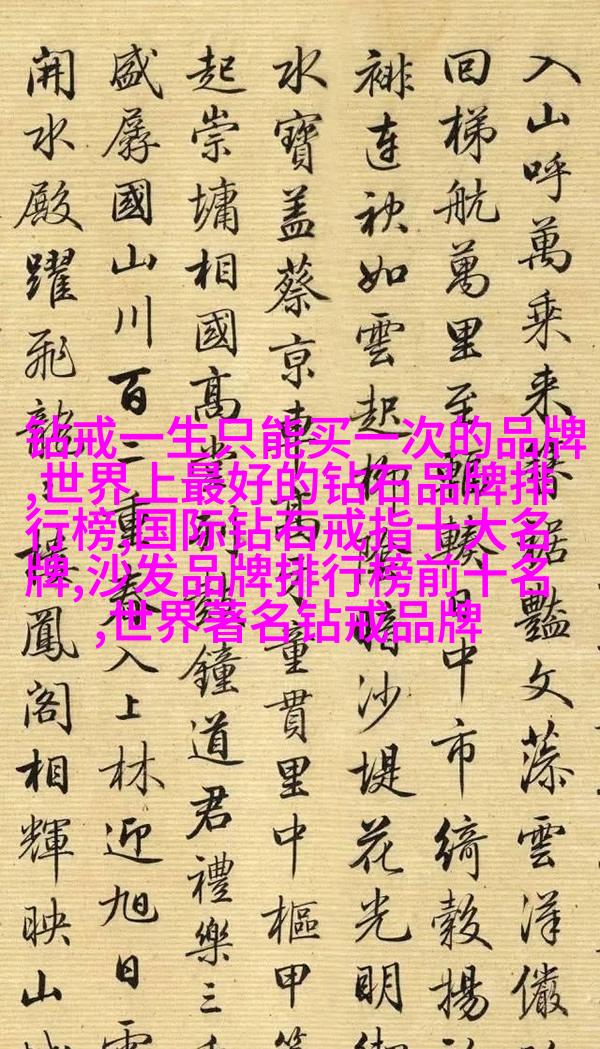 钻戒一生只能买一次的品牌
,世界上最好的钻石品牌排
行榜,国际钻石戒指十大名
牌,沙发品牌排行榜前十名
,世界著名钻戒品牌
入山呼萬乘来裾豔文藻雲洋儼
回梯航萬里至輻輳日中市綺縠揚
連袂如雲起柳陰暗沙堤花光明
水寶蓋蔡京萬童貫里中樞甲第
起崇墉相國高堂列鐘道君禮樂三
盛孱國山川百二重春入上林迎旭日雲
開水殿躍飛龍樓鳳閣相輝映山城